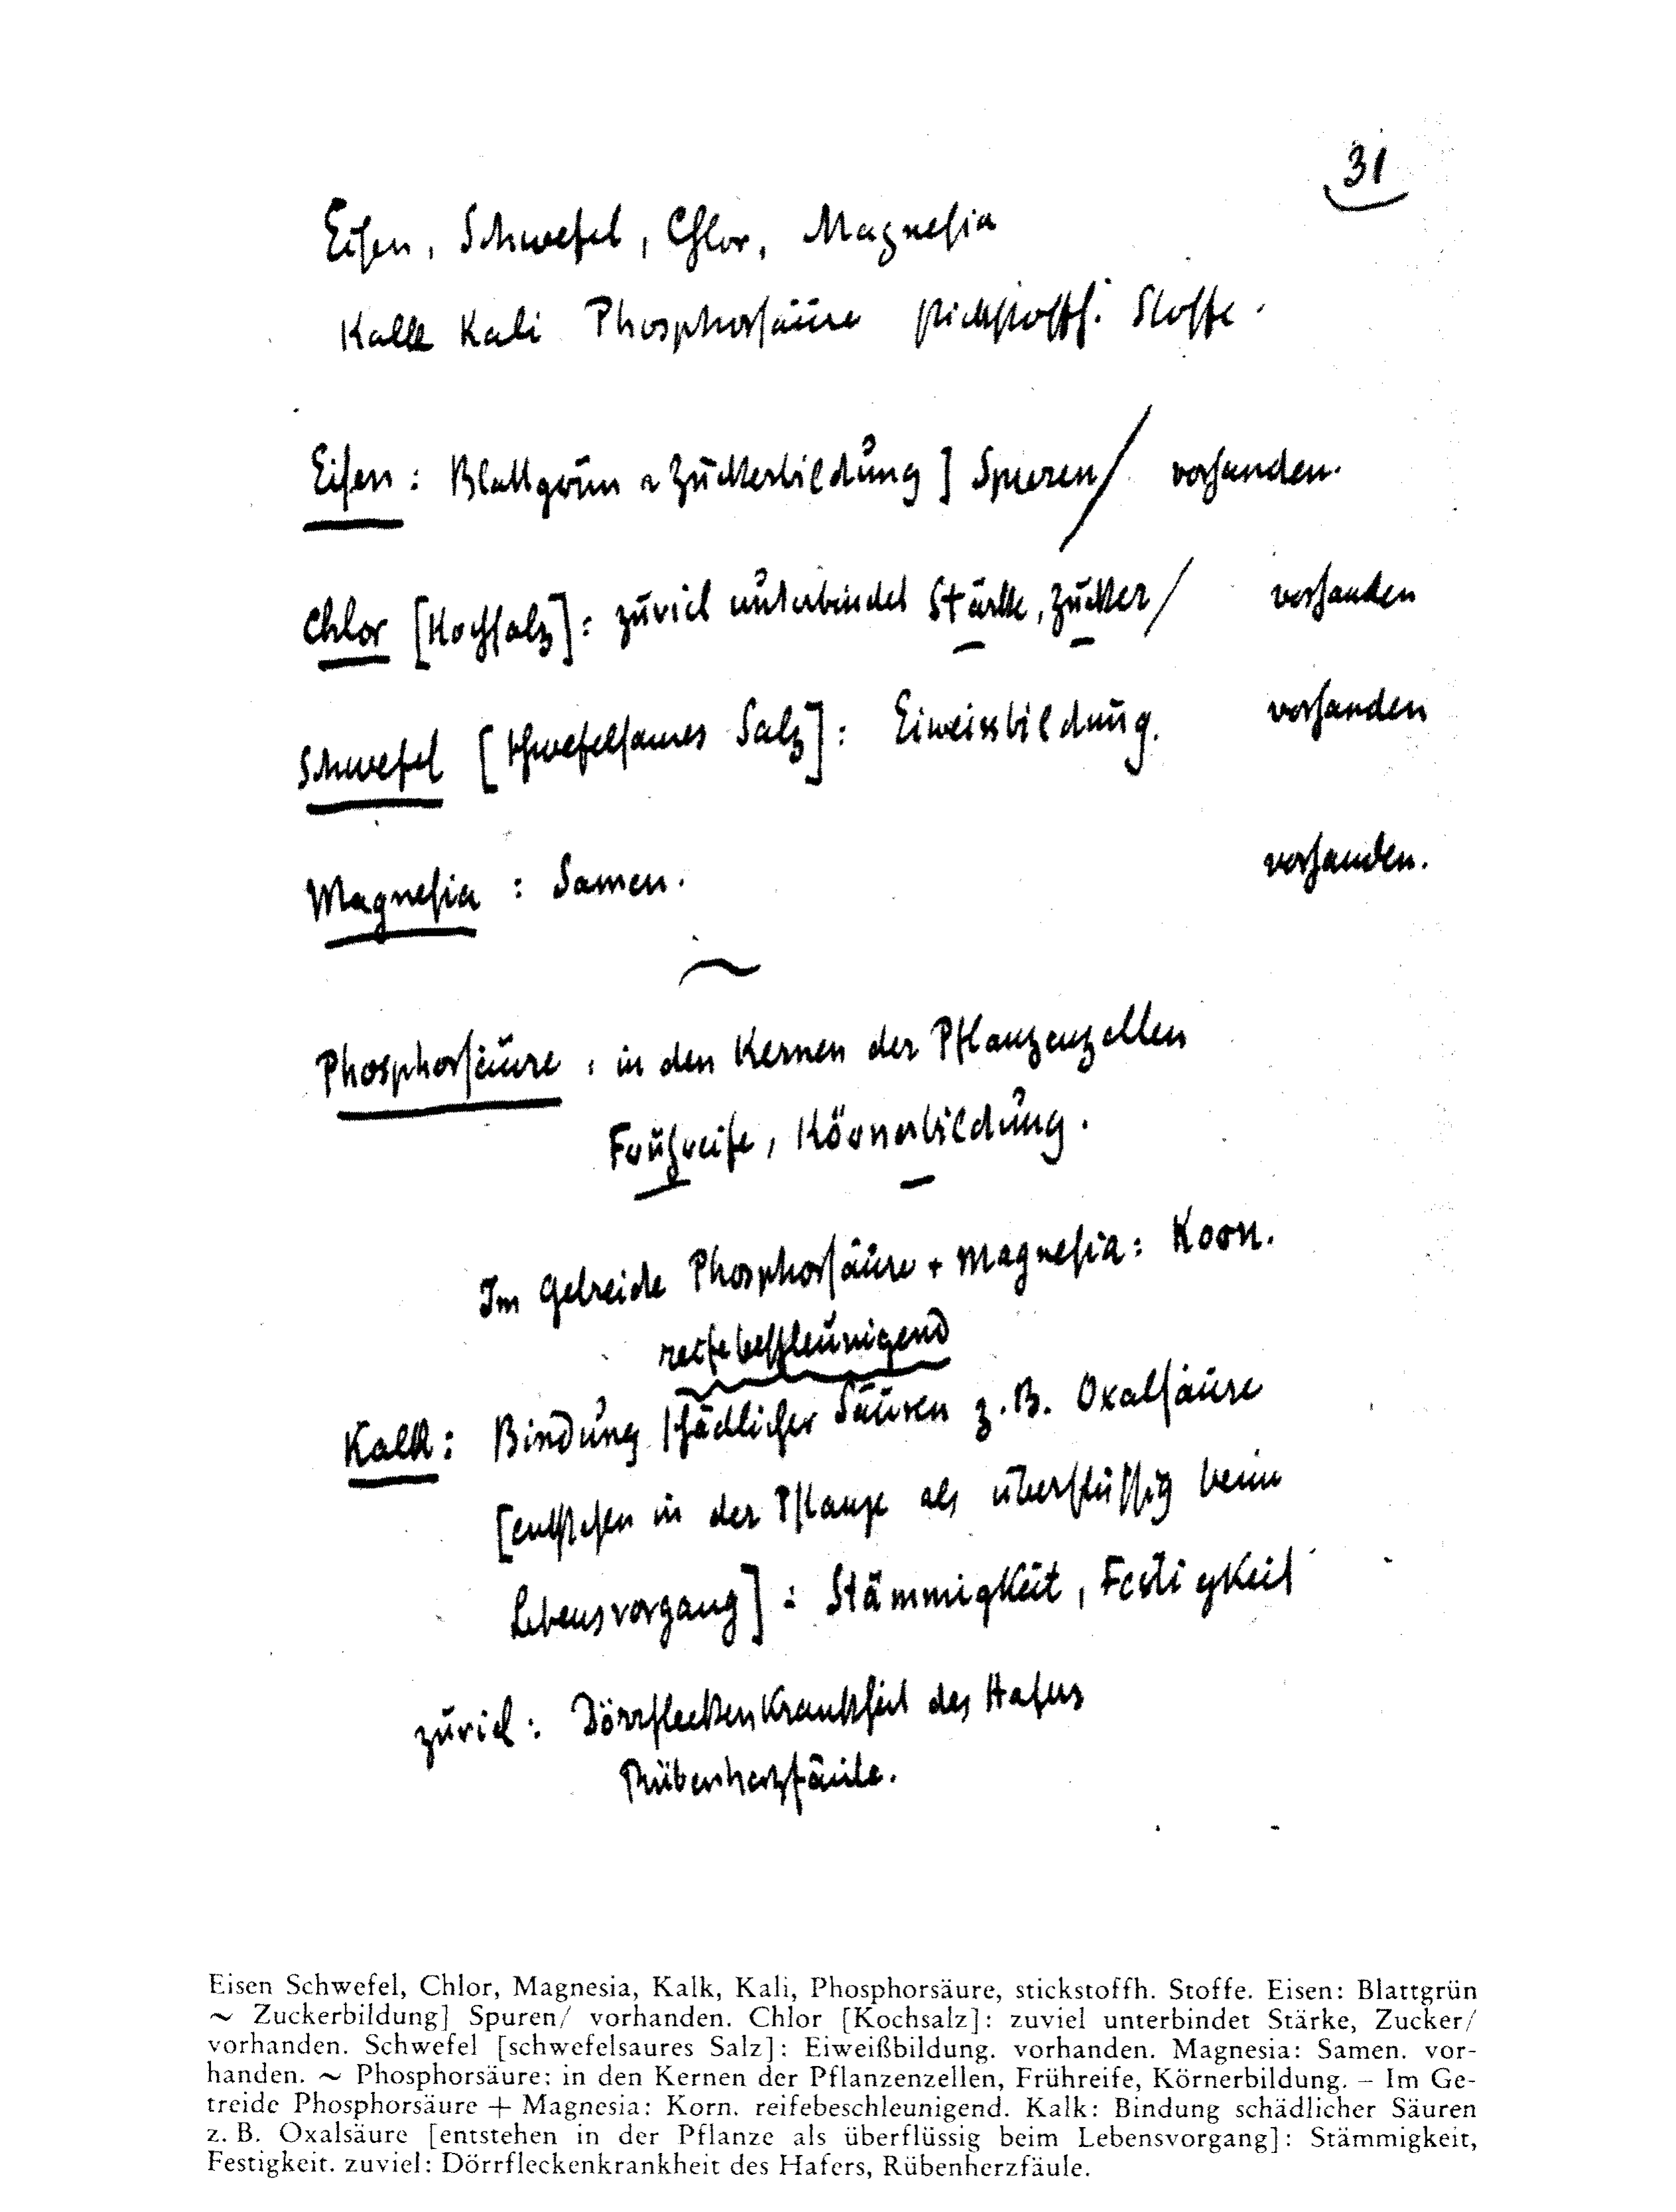 31
Eisen, Schwefel, Chlor, Magnesia
Kalk Kali Phosphorsäure stickstoffh. Stoffe.
Eisen: Blattgrün ~ Zuckerbildung] Spuren/ vorhanden.
Chlor [Kochsalz]: zuviel unterbindet Stärke, Zucker/ vorhanden
Schwefel [schwefelsaures Salz]: Eiweissbildung. vorhanden
Magnesia: Samen. vorhanden.
~
Phosphorsäure: in den Kernen der Pflanzenzellen
Frühreife, Körnerbildung.
Im Getreide Phosphorsäure + Magnesia: Korn.
reifebeschleunigend
Kalk: Bindung schädlicher Säuren z. B. Oxalsäure
[entstehen in der Pflanze als überflüssig beim
Lebensvorgang]: Stämmigkeit, Festigkeit
zuviel: Dörrfleckenkrankheit des Hafers
Rübenherzfäule.
Eisen Schwefel, Chlor, Magnesia, Kalk, Kali, Phosphorsäure, stickstoffh. Stoffe. Eisen: Blattgrün
~ Zuckerbildung] Spuren/ vorhanden. Chlor [Kochsalz]: zuviel unterbindet Stärke, Zucker/
vorhanden. Schwefel [schwefelsaures Salz]: Eiweißbildung. vorhanden. Magnesia: Samen. vor-
handen. ~ Phosphorsäure: in den Kernen der Pflanzenzellen, Frühreife, Körnerbildung. – Im Ge-
treide Phosphorsäure + Magnesia: Korn. reifebeschleunigend. Kalk: Bindung schädlicher Säuren
z. B. Oxalsäure [entstehen in der Pflanze als überflüssig beim Lebensvorgang]: Stämmigkeit,
Festigkeit. zuviel: Dörrfleckenkrankheit des Hafers, Rübenherzfäule.